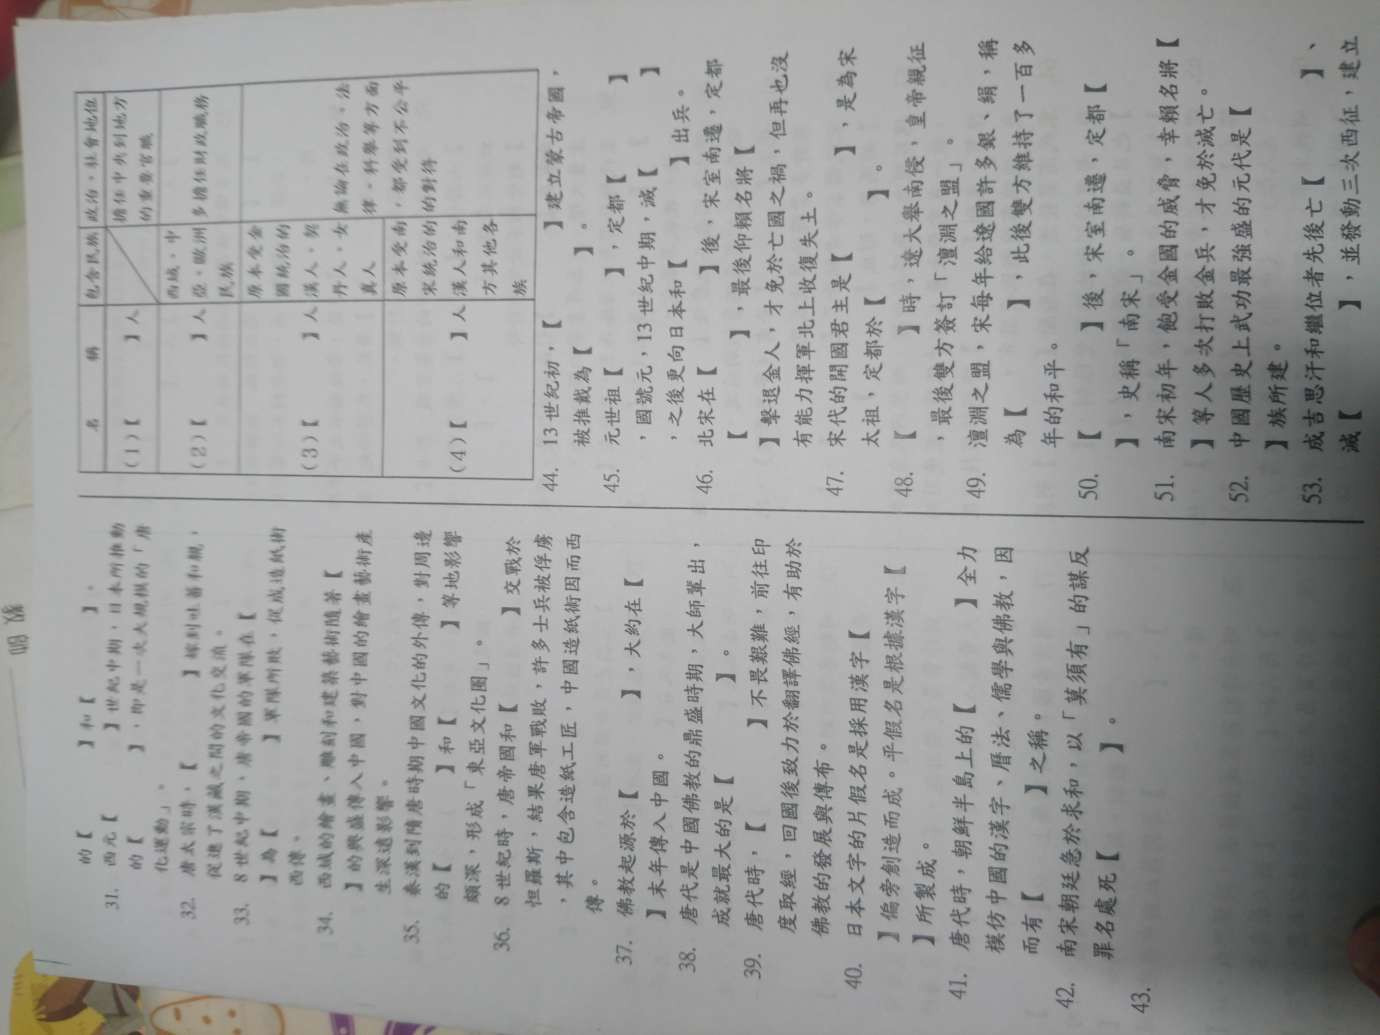 的【　　】和【　　】。
31. 西元【　　】世紀中期，日本所推動
的【　　】，即是一次大規模的「唐
化運動」。
32. 唐太宗時，【　　】嫁到吐蕃和親，
促進了漢藏之間的文化交流。
33. 8世紀中期，唐帝國的軍隊在【
】為【　　】軍隊所敗，促成造紙術
西傳。
34. 西域的繪畫、雕刻和建築藝術隨著【
】的興盛傳入中國，對中國的繪畫藝術產
生深遠影響。
35. 秦漢到隋唐時期中國文化的外傳，對周邊
的【　　】和【　　】等地影響
頗深，形成「東亞文化圈」。
36. 8世紀時，唐帝國和【　　】交戰於
怛羅斯，結果唐軍戰敗，許多士兵被俘虜
，其中包含造紙工匠，中國造紙術因而西
傳。
37. 佛教起源於【　　】，大約在【
】末年傳入中國。
38. 唐代是中國佛教的鼎盛時期，大師輩出，
成就最大的是【　　】。
39. 唐代時，【　　】不畏艱難，前往印
度取經，回國後致力於翻譯佛經，有助於
佛教的發展與傳布。
40. 日本文字的片假名是採用漢字【
】偏旁創造而成。平假名是根據漢字【
】所製成。
41. 唐代時，朝鮮半島上的【　　】全力
模仿中國的漢字、曆法、儒學與佛教，因
而有【　　】之稱。
42. 南宋朝廷急於求和，以「莫須有」的謀反
罪名處死【　　】。
43.
名　稱　包含民族　政治、社會地位
(1)【　　】人　擔任中央到地方
的重要官職
(2)【　　】人　西域、中
亞、歐洲
民族　多擔任財政職務
(3)【　　】人　原本受金
國統治的
漢人、契
丹人、女
真人
(4)【　　】人　原本受南
宋統治的
漢人和南
方其他各
族
無論在政治、法
律、科舉等方面
，都受到不公平
的對待
44. 13世紀初，【　　】建立蒙古帝國，
被推戴為【　　】。
45. 元世祖【　　】，定都【　　】
，國號元，13世紀中期，滅【　　】
，之後更向日本和【　　】出兵。
46. 北宋在【　　】後，宋室南遷，定都
【　　】，最後仰賴名將【
】擊退金人，才免於亡國之禍，但再也沒
有能力揮軍北上收復失土。
47. 宋代的開國君主是【　　】，是為宋
太祖，定都於【　　】。
48. 【　　】時，遼大舉南侵，皇帝親征
，最後雙方簽訂「澶淵之盟」。
49. 澶淵之盟，宋每年給遼國許多銀、絹，稱
為【　　】，此後雙方維持了一百多
年的和平。
50. 【　　】後，宋室南遷，定都【
】，史稱「南宋」。
51. 南宋初年，飽受金國的威脅，幸賴名將【
】等人多次打敗金兵，才免於滅亡。
52. 中國歷史上武功最強盛的元代是【
】族所建。
53. 成吉思汗和繼位者先後亡【　　】、
滅【　　】，並發動三次西征，建立